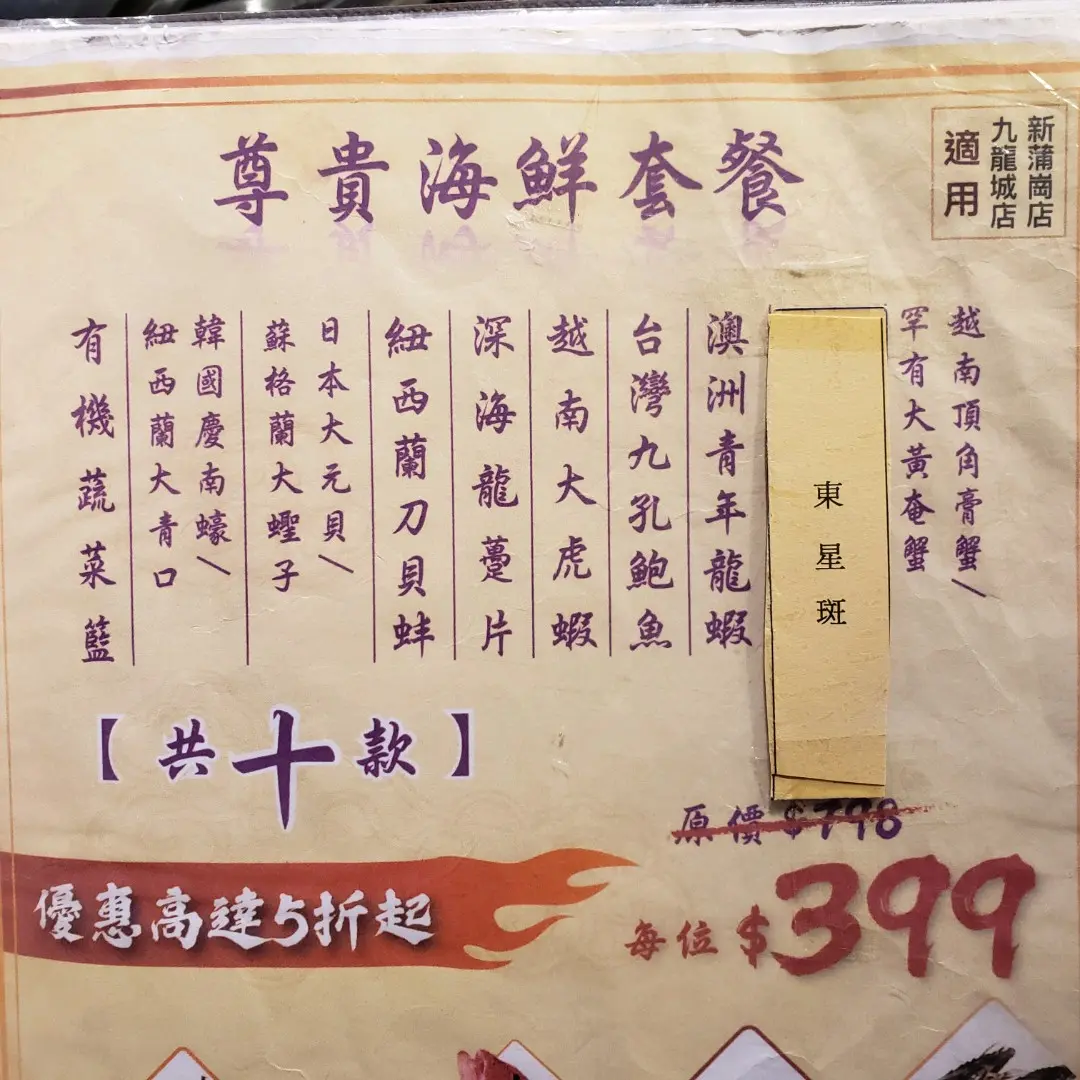 新蒲崗店
九龍城店
適用
尊貴海鮮套餐
越南頂角膏蟹/
罕有大黃奄蟹
東星斑
澳洲青年龍蝦
台灣九孔鮑魚
越南大虎蝦
深海龍躉片
紐西蘭刀貝蚌
日本大元貝/
蘇格蘭大蟶子
韓國慶南蠔/
紐西蘭大青口
有機蔬菜籃
【共十款】
原價$798
優惠高達5折起
每位$399